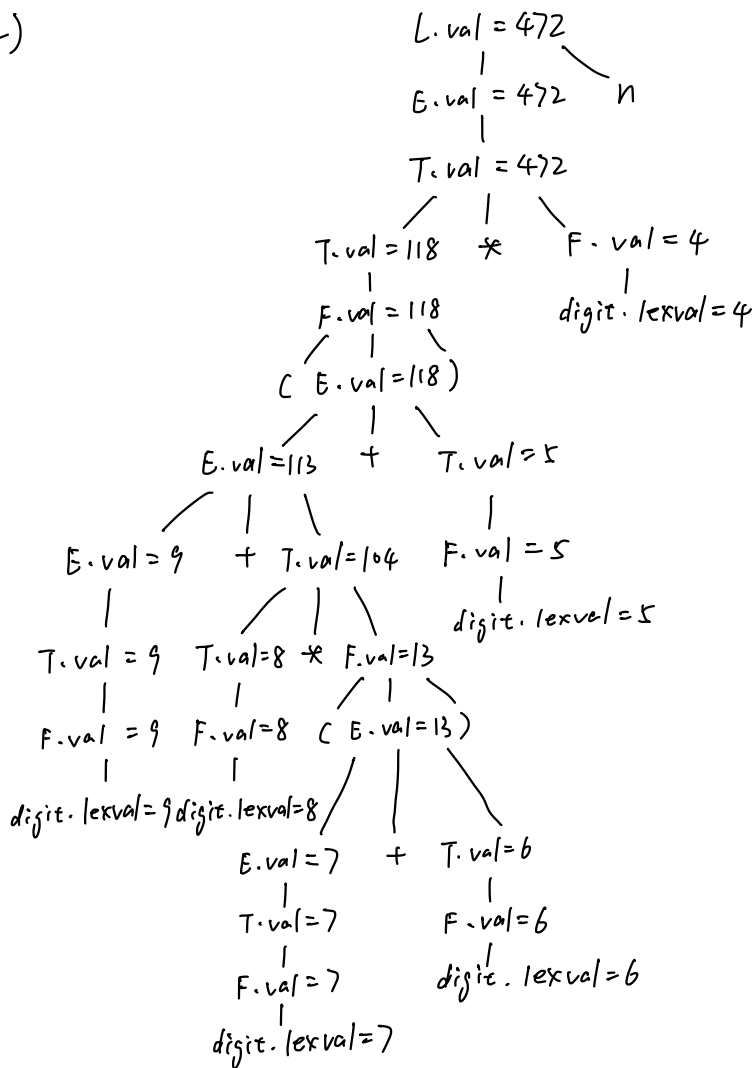 -)
L.val = 472
E.val = 472 n
T.val = 472
T.val = 118 * F.val = 4
F.val = 118 digit.lexval = 4
( E.val = 118 )
E.val = 113 + T.val = 5
E.val = 9 + T.val = 104 F.val = 5
digit.lexval = 5
T.val = 9 T.val = 8 * F.val = 13
F.val = 9 F.val = 8 ( E.val = 13 )
digit.lexval = 9 digit.lexval = 8
E.val = 7 + T.val = 6
T.val = 7 F.val = 6
F.val = 7 digit.lexval = 6
digit.lexval = 7